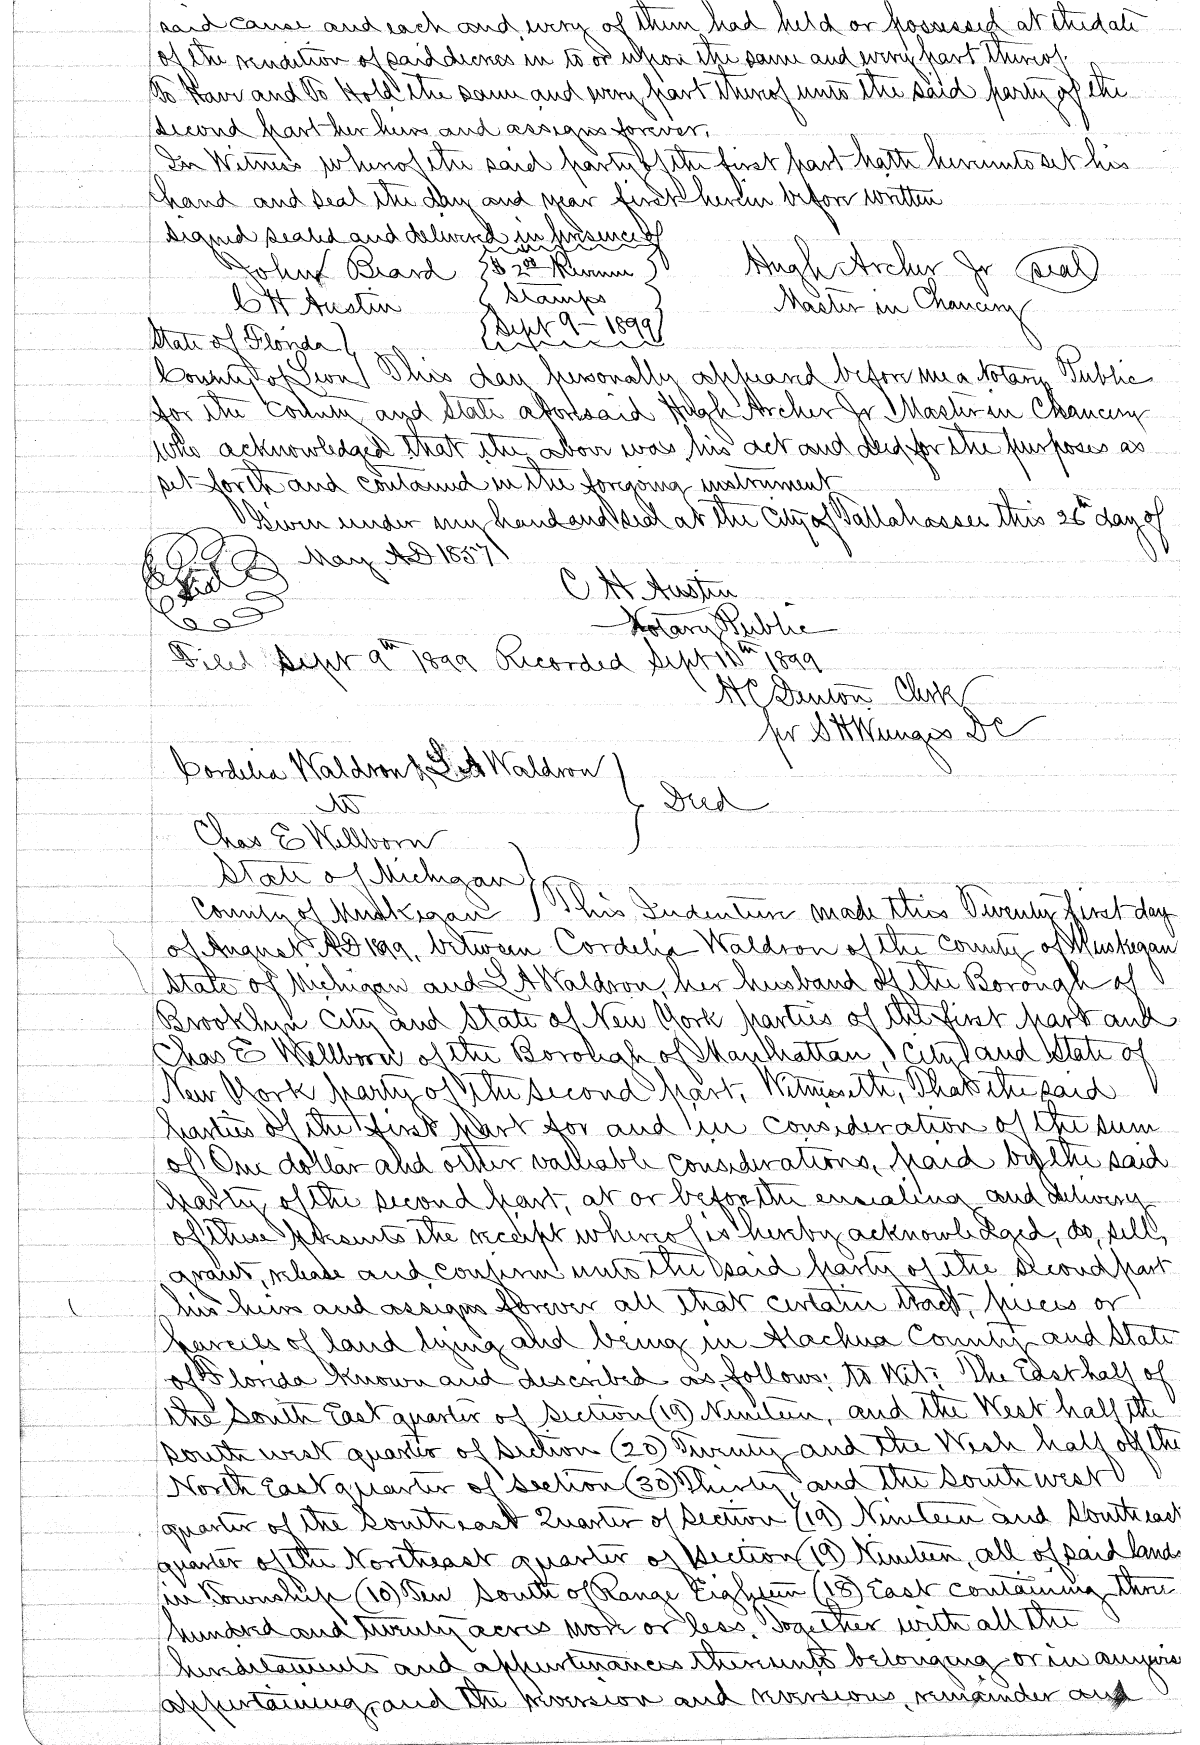 said cause and each and every of them had held or possessed at the date
of the rendition of said decree in to or upon the same and every part thereof.
To Have and To Hold the same and every part thereof unto the said party of the
second part her heirs and assigns forever.
In Witness whereof the said party of the first part hath hereunto set his
hand and seal the day and year first herein before written
Signed sealed and delivered in presence of
John Beard { $2 00 Revenue } Hugh Archer Jr (seal)
C H Austin { Stamps } Master in Chancery
State of Florida } { Sept 9 - 1899 }
County of Leon } This day personally appeared before me a Notary Public
for the County and State aforesaid Hugh Archer Jr Master in Chancery
who acknowledged that the above was his act and deed for the purposes as
set forth and contained in the foregoing instrument
Given under my hand and seal at the City of Tallahassee this 26th day of
Seal May AD 1857
C H Austin
Notary Public
Filed Sept 9th 1899 Recorded Sept 15th 1899
H C Denton Clerk
pr S H Wienges DC
Cordelia Waldron & L A Waldron }
to } Deed
Chas E Wellborn }
State of Michigan }
County of Muskegan } This Indenture made this Twenty first day
of August AD 1899, between Cordelia Waldron of the County of Muskegan
State of Michigan and L A Waldron, her husband of the Borough of
Brooklyn City and State of New York parties of the first part and
Chas E Wellborn of the Borough of Manhattan, City and State of
New York party of the second part, Witnesseth, That the said
parties of the first part for and in consideration of the sum
of One dollar and other valuable considerations, paid by the said
party of the second part, at or before the ensealing and delivery
of these presents the receipt whereof is hereby acknowledged, do, sell,
grant, release and confirm unto the said party of the second part
his heirs and assigns forever all that certain tract, pieces or
parcels of land lying and being in Alachua County and State
of Florida known and described as follows; to wit: The East half of
the South East quarter of Section (19) Nineteen, and the West half the
South west quarter of Section (20) Twenty and the West half of the
North East quarter of Section (30) Thirty, and the South west
quarter of the South east Quarter of Section (19) Nineteen and South east
quarter of the Northeast quarter of Section (19) Nineteen, all of said land
in Township (10) Ten South of Range Eighteen (18) East containing three
hundred and twenty acres more or less. Together with all the
hereditaments and appurtenances thereunto belonging or in anywise
appertaining, and the reversion and reversions, remainder and